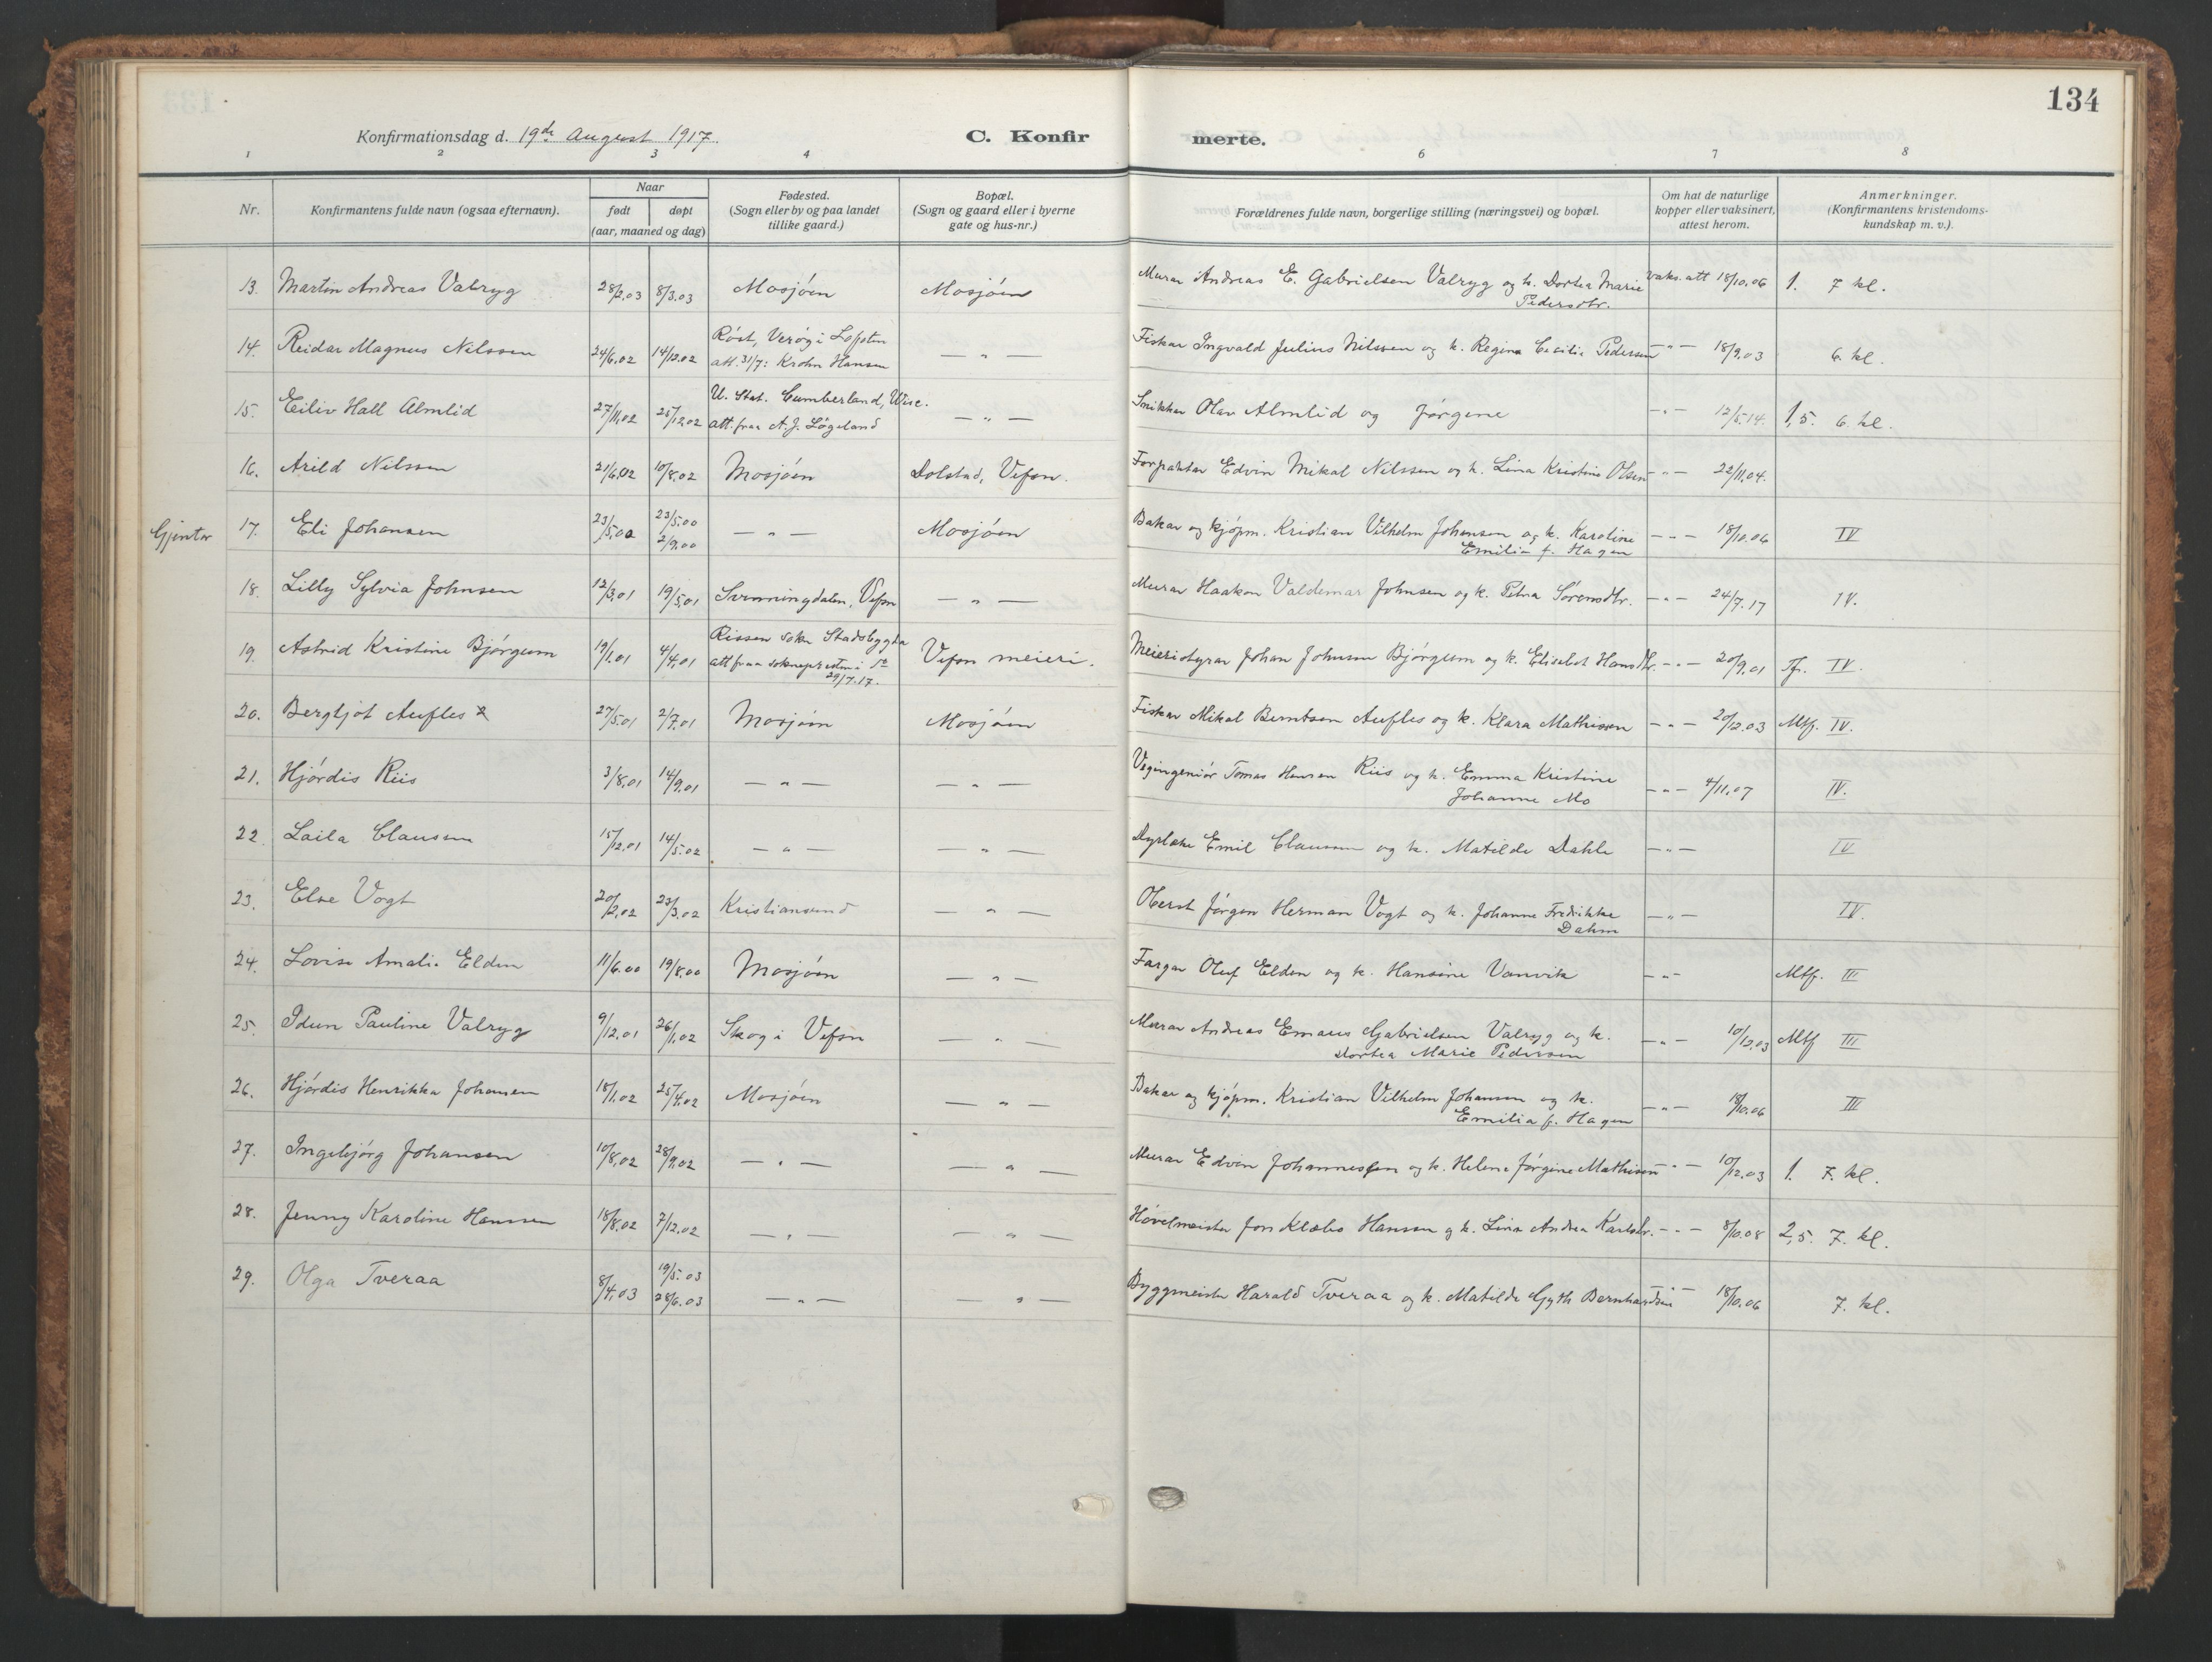 134
Konfirmationsdag d. 19de August 1917.
C. Konfirmerte.
1 2 3 4 6 7 8
Nr.
Konfirmantens fulde navn (ogsaa efternavn).
Naar
født døpt
(aar, maaned og dag)
Fødested.
(Sogn eller by og paa landet
tillike gaard.)
Bopæl.
(Sogn og gaard eller i byerne
gate og hus-nr.)
Forældrenes fulde navn, borgerlige stilling (næringsvei) og bopæl.
Om hat de naturlige
kopper eller vaksinert,
attest herom.
Anmerkninger.
(Konfirmantens kristendoms-
kundskap m. v.).
13. Martin Andreas Valryg 28/2.03 8/3.03 Mosjøen Mosjøen Murar Andreas E. Gabrielsen Valryg og k. Dortea Marie Pedersdtr. vaks. att 18/10.06 1. 7 kl.
14. Reidar Magnus Nilssen 24/6.02 14/12.02 Røst, Verøy i Lofoten
att. 31/7: Krohn Hansen — " — Fiskar Ingvald Julius Nilssen og k. Regina Cecilie Pedersen — " — 18/9.03 6. kl.
15. Eiliv Hall Almlid 27/11.02 25/12.02 U. Stat. Cumberland, Wisc.
att. fraa A. J. Løgeland — " — Snikkar Olav Almlid og Jørgine — " — 12/5.14. 1,5. 6. kl.
16. Arild Nilssen 21/6.02 10/8.02 Mosjøen Dolstad, Vefsn. Forpaktar Edvin Mikal Nilssen og k. Lina Kristine Olsen — " — 22/11.04.
Gjentor
17. Eli Johansen 23/5.00 23/5.00
2/9.00 — " — Mosjøen Bakar og kjøpm. Kristian Vilhelm Johansen og k. Karoline
Emilia f. Hagen — " — 18/10.06 IV
18. Lilly Sylvia Johnsen 12/3.01 19/5.01 Svenningdalen, Vefsn — " — Murar Haakon Valdemar Johnsen og k. Petra Sørensdtr. — " — 24/7.17 IV.
19. Astrid Kristine Bjørgum 19/1.01 4/4.01 Rissen sokn Stadsbygda
att fraa soknepresten i St
29/7.17. Vefsn meieri. Meieristyrar Johan Johnsen Bjørgum og k. Elisabet Hansdtr. — " — 20/9.01 Tf. IV.
20. Bergljot Aufles 27/5.01 2/7.01 Mosjøen Mosjøen Fiskar Mikal Berntsen Aufles og k. Klara Mathissen — " — 20/12.03 Mtf. IV.
21. Hjørdis Riis 3/8.01 14/9.01 — " — — " — Vegingeniør Tomas Hansen Riis og k. Emma Kristine
Johanne Mo — " — 4/11.07 IV.
22. Laila Clausen 15/12.01 14/5.02 — " — — " — Dyrlæke Emil Clausen og k. Matilde Dahle — " — IV
23. Else Vogt 20/2.02 23/3.02 Kristiansund — " — Oberst Jørgen Herman Vogt og k. Johanne Fredrikke
Dahm — " — IV.
24. Lovise Amalie Elden 11/6.00 19/8.00 Mosjøen — " — Fargar Oluf Elden og k. Hansine Vanvik — " — Mtf. III
25. Idun Pauline Valryg 9/12.01 26/1.02 Skog i Vefsn — " — Murar Andreas Emaus Gabrielsen Valryg og k.
Dortea Marie Pedersen — " — 10/12.03 Mtf III
26. Hjørdis Henrikka Johansen 18/1.02 25/4.02 Mosjøen — " — Bakar og kjøpm. Kristian Vilhelm Johansen og k.
Emilia f. Hagen — " — 18/10.06 III
27. Ingebjørg Johansen 10/8.02 28/9.02 — " — — " — Murar Edvin Johannessen og k. Helene Jørgine Mathisen — " — 10/12.03 1. 7. kl.
28. Jenny Karoline Hanssen 18/8.02 7/12.02 — " — — " — Høvelmeister Jon Klæbo Hanssen og k. Lina Andrea Karlsdtr. — " — 8/10.08 2,5. 7. kl.
29. Olga Tveraa 8/4.03 19/5.03
28/6.03 — " — — " — Byggmeister Harald Tveraa og k. Matilde Gyth Bernhardsen — " — 18/10.06 7. kl.